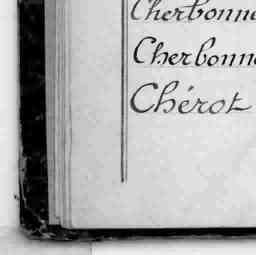 Cherbonne
Cherbonne
Chérot